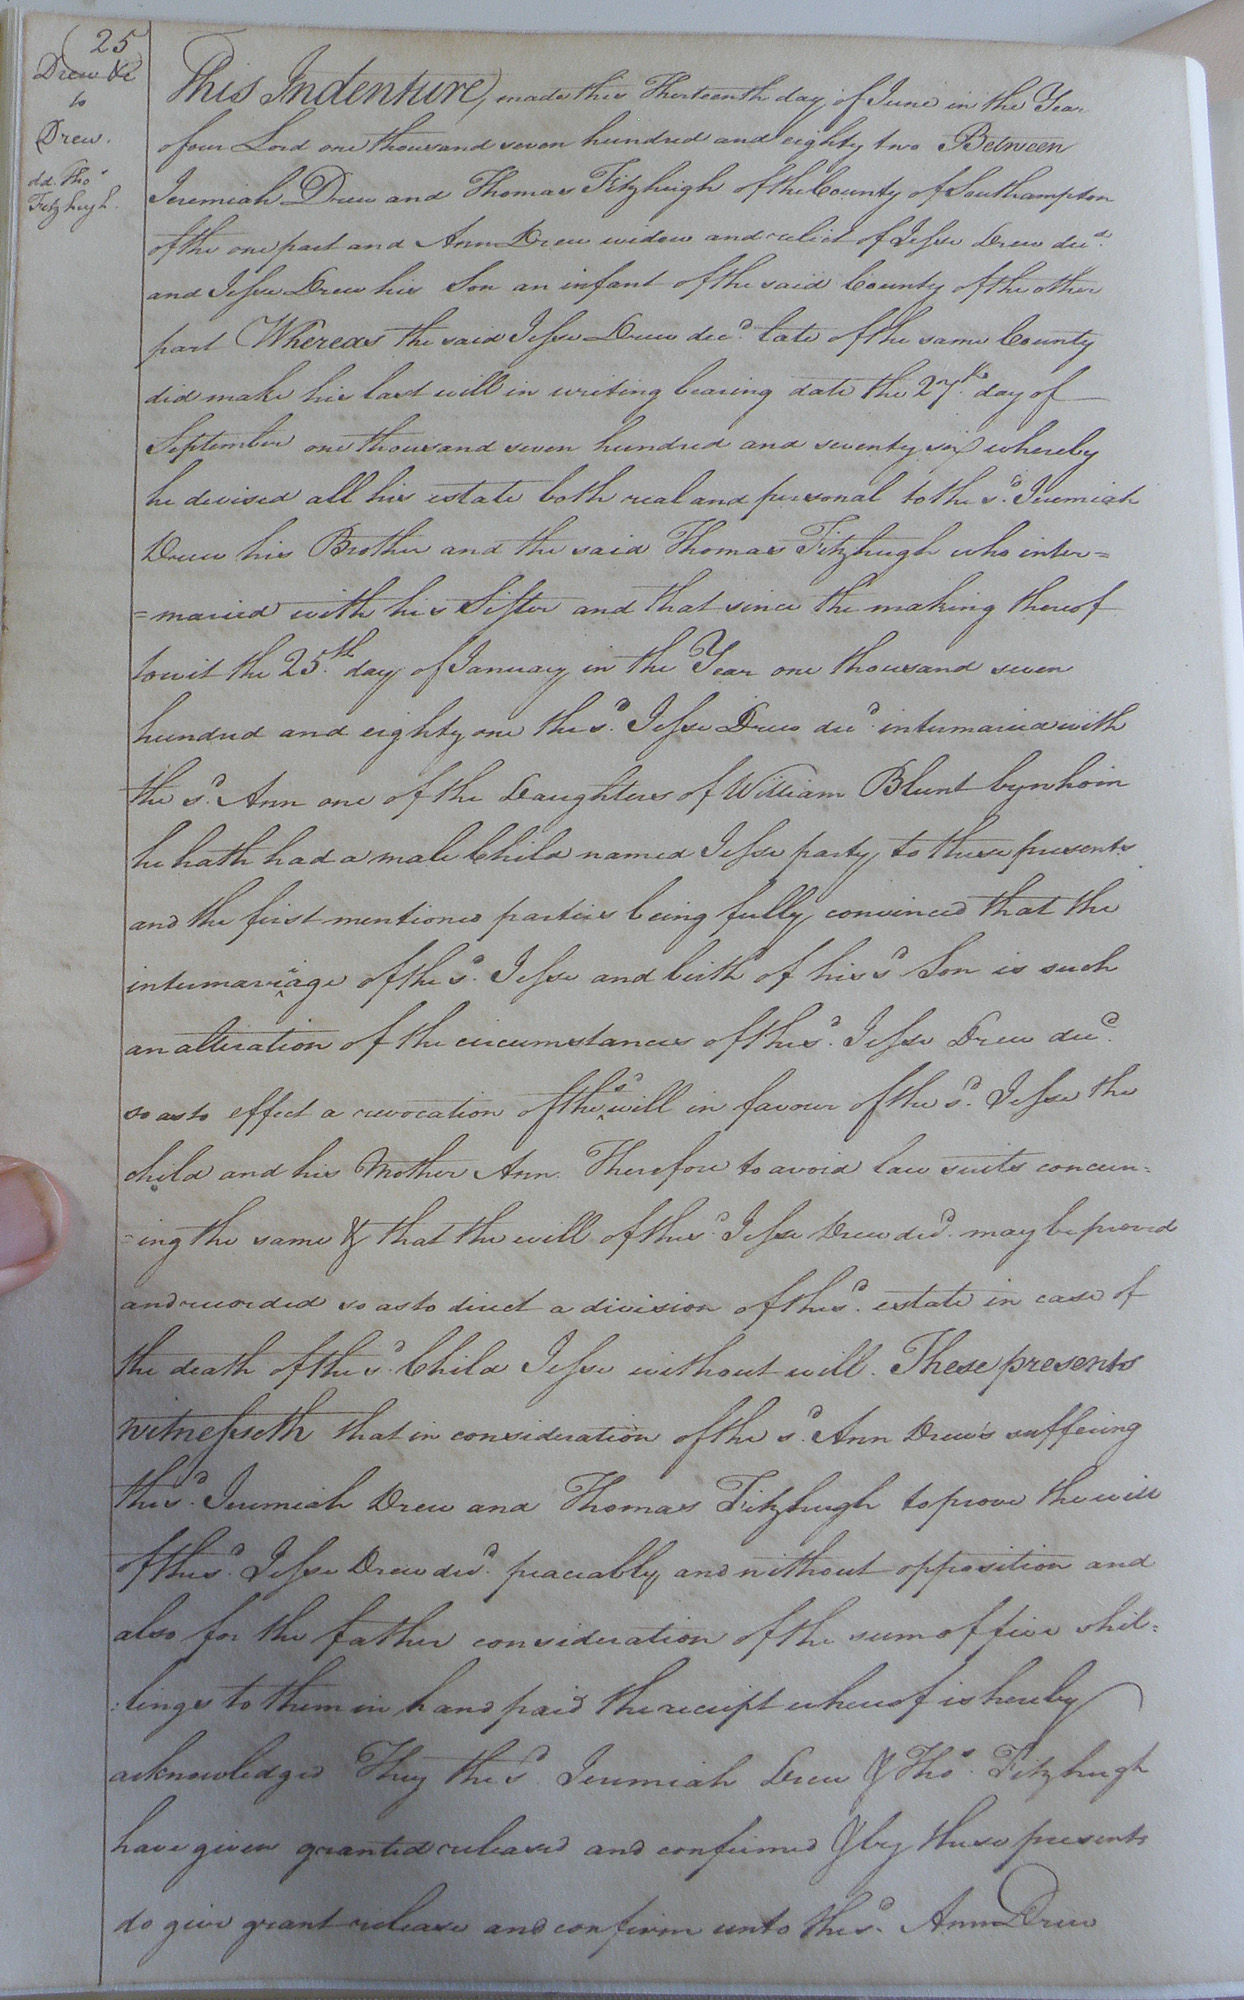 (25)
Drew &c
to
Drew.
dd. Thos
Fitzhugh.
This Indenture, made this Thirteenth day of June in the Year
of our Lord one thousand seven hundred and eighty two Between
Jeremiah Drew and Thomas Fitzhugh of the County of Southampton
of the one part and Ann Drew widow and relict of Jesse Drew decd.
and Jesse Drew his Son an infant of the said County of the other
part Whereas the said Jesse Drew decd. late of the same County
did make his last will in writing bearing date the 27th. day of
September one thousand seven hundred and seventy six whereby
he devised all his estate both real and personal to the sd. Jeremiah
Drew his Brother and the said Thomas Fitzhugh who inter=
=maried with his Sister and that since the making thereof
towit the 25th. day of January in the Year one thousand seven
hundred and eighty one the sd. Jesse Drew decd. intermaried with
the sd. Ann one of the Daughters of William Blunt by whom
he hath had a male Child named Jesse party to these presents
and the first mentioned parties being fully convinced that the
intermariage of the sd. Jesse and birth of his sd Son is such
an alteration of the circumstances of the sd. Jesse Drew decd.
so as to effect a revocation of the sd will in favour of the sd. Jesse the
child and his Mother Ann. Therefore to avoid law suits concern-
-ing the same & that the will of the sd. Jesse Drew decd. may be proved
and recorded so as to direct a division of the sd. estate in case of
the death of the sd. Child Jesse without will. These presents
witnesseth that in consideration of the sd. Ann Drew's suffering
the sd. Jeremiah Drew and Thomas Fitzhugh to prove the will
of the sd. Jesse Drew decd. peaceably and without opposition and
also for the father consideration of the sum of five shil=
:lings to them in hand paid the receipt whereof is hereby
acknowledged They the sd. Jeremiah Drew & Thos. Fitzhugh
have given granted released and confirmed & by these presents
do give grant release and confirm unto the sd. Ann Drew